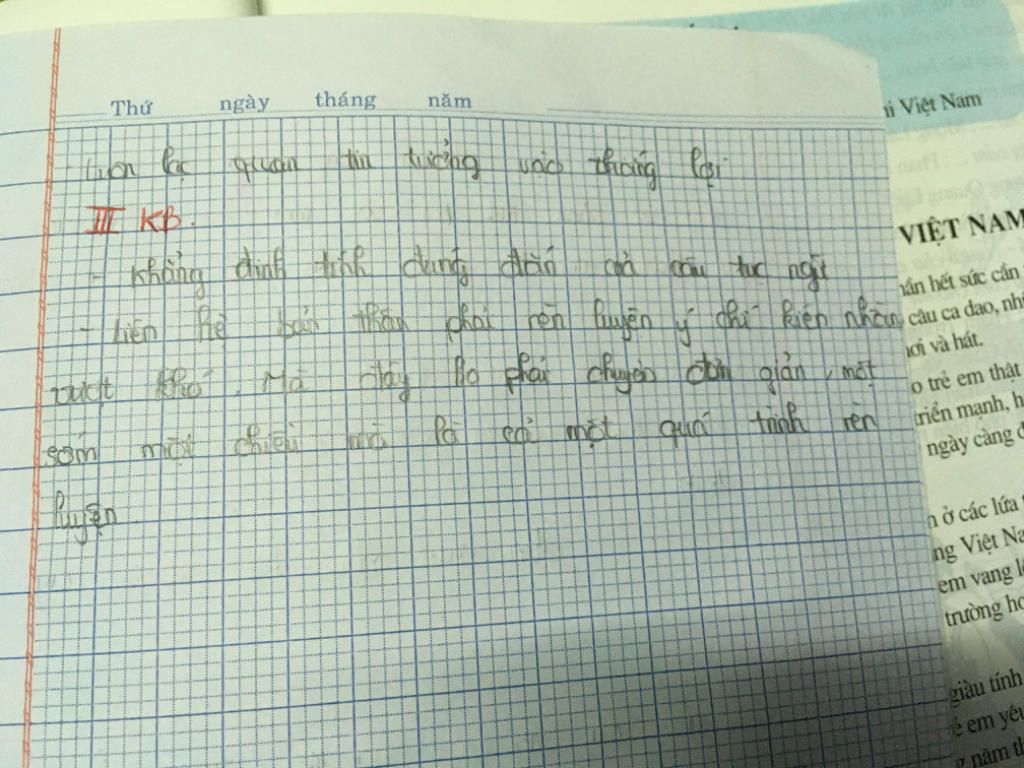 Thứ ngày tháng năm
- Luôn lạc quan tin tưởng vào thắng lợi
III KB.
- Khẳng định tính đúng đắn của câu tục ngữ
- Liên hệ bản thân phải rèn luyện ý chí kiên nhẫn
vượt khó. Mà đây ko phải chuyện đơn giản, một
sớm một chiều mà là cả một quá trình rèn
luyện
Việt Nam
VIỆT NAM
hết sức cần
câu ca dao, nh
và hát.
o trẻ em thật
triển mạnh, h
ngày càng đ
ở các lứa
ng Việt Na
em vang l
trường họ
giàu tính
em yêu
năm th